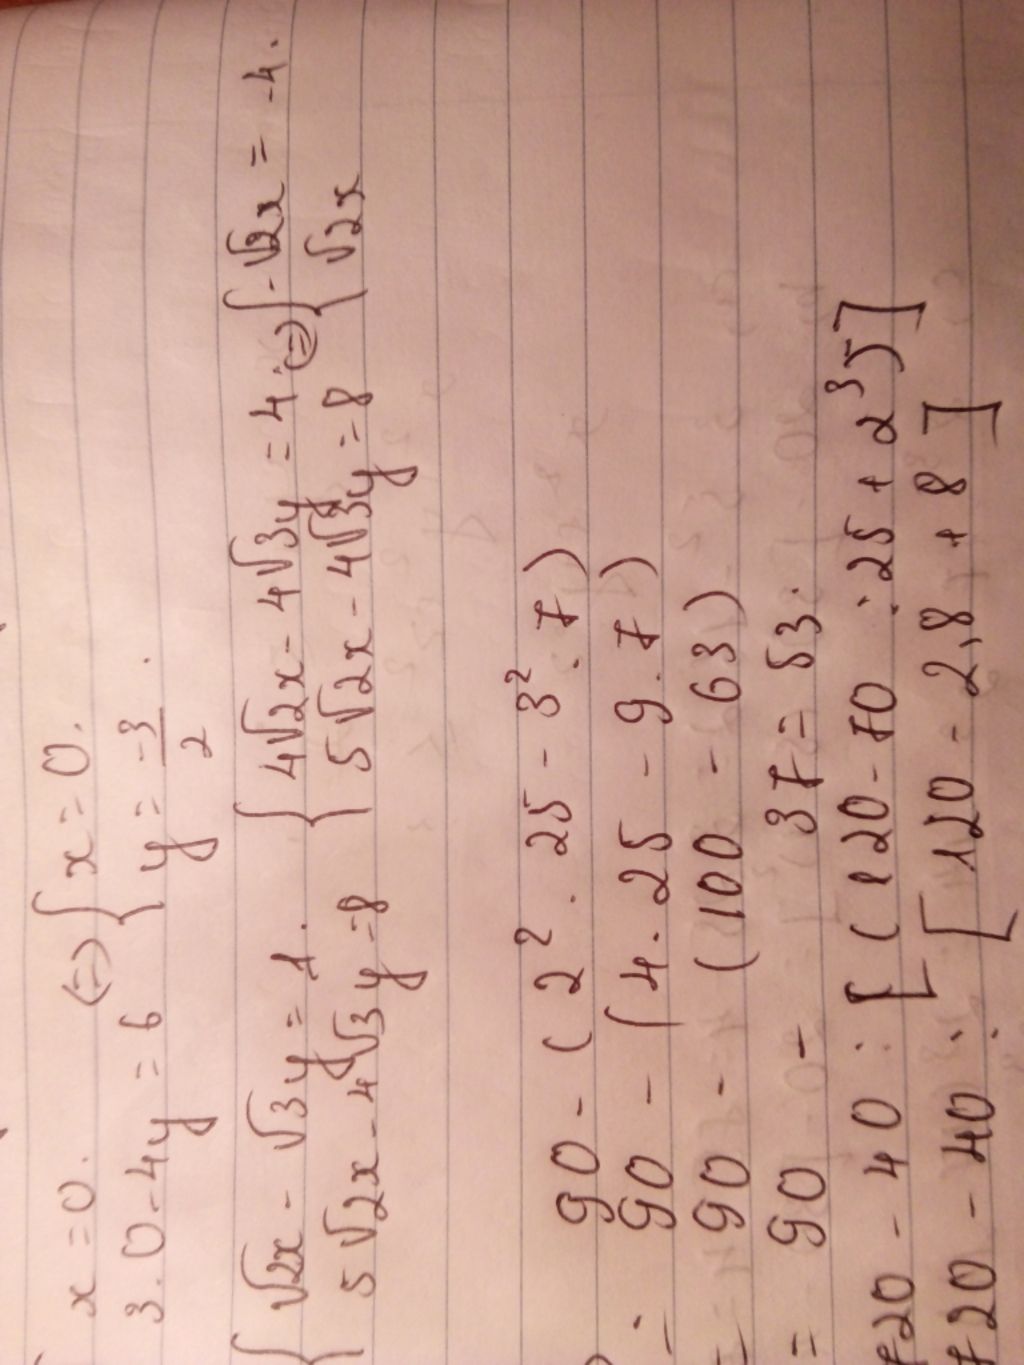 x = 0. ⇔ { x = 0.
3 . 0 - 4y = 6 { y = -3/2 .
{ √2x - √3y = 1. { 4√2x - 4√3y = 4. ⇔ { -√2x = -4.
{ 5√2x - 4√3y = 8 { 5√2x - 4√3y = 8 { √2x
) 90 - ( 2² . 25 - 3² . 7 )
= 90 - ( 4 . 25 - 9 . 7 )
= 90 - ( 100 - 63 )
= 90 - 37 = 53.
720 - 40 : [ ( 120 - 70 : 25 + 2³ ) ]
720 - 40 : [ 120 - 2,8 + 8 ]